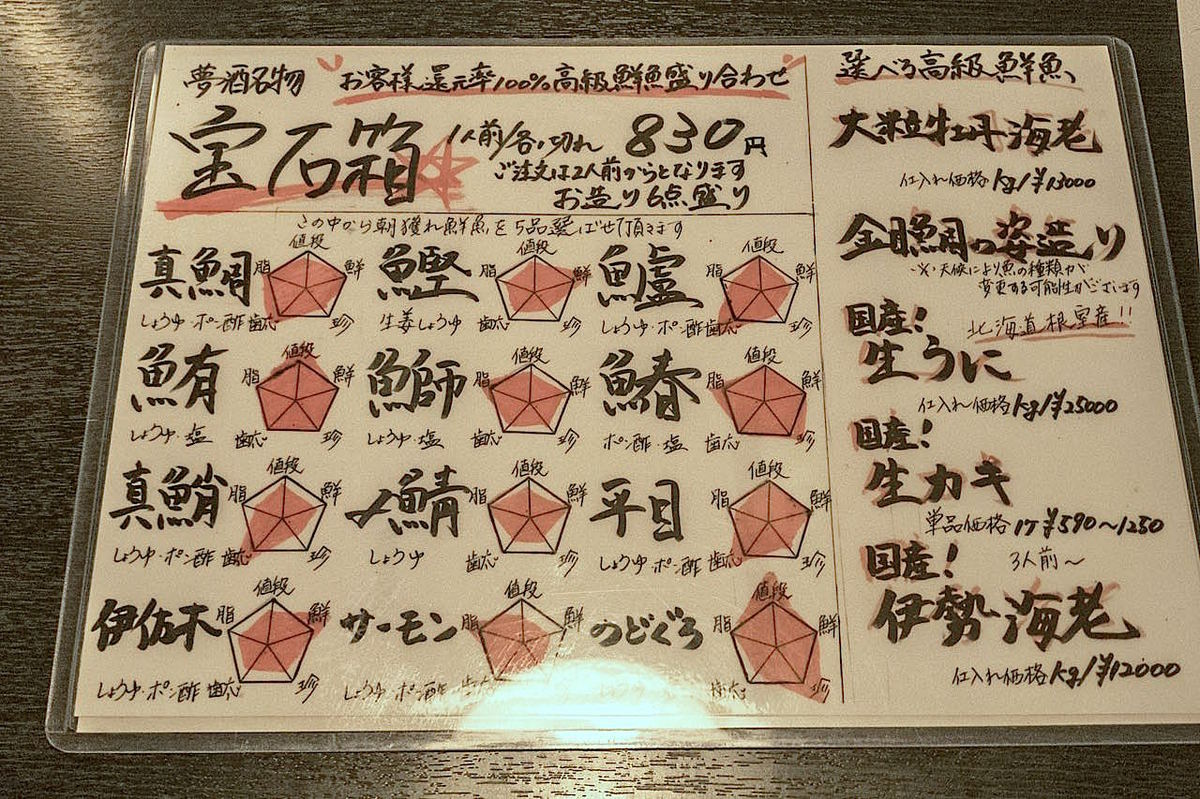 夢酒名物 お客様還元率100%高級鮮魚盛り合わせ
宝石箱 1人前/各1切れ 830円
ご注文は2人前からとなります
お造り6点盛り
この中から朝獲れ鮮魚を5品選ばせて頂きます
真鯛 値段 鮮 珍 歯応 脂
しょうゆ・ポン酢
鰹 値段 鮮 珍 歯応 脂
生姜しょうゆ
鱸 値段 鮮 珍 歯応 脂
しょうゆ・ポン酢
鮪 値段 鮮 珍 歯応 脂
しょうゆ・塩
鰤 値段 鮮 珍 歯応 脂
しょうゆ・塩
鰆 値段 鮮 珍 歯応 脂
ポン酢・塩
真鮹 値段 鮮 珍 歯応 脂
しょうゆ・ポン酢
〆鯖 値段 鮮 珍 歯応 脂
しょうゆ
平目 値段 鮮 珍 歯応 脂
しょうゆ・ポン酢
伊佐木 値段 鮮 珍 歯応 脂
しょうゆ・ポン酢
サーモン 値段 鮮 珍 脂
しょうゆ・ポン酢
のどぐろ 値段 鮮 珍 歯応 脂
選べる高級鮮魚
大粒牡丹海老
仕入れ価格kg/¥13000
金目鯛の姿造り
※天候により魚の種類が
変更する可能性がございます
国産! 北海道根室産!!
生うに
仕入れ価格kg/¥25000
国産!
生カキ
単品価格1ケ¥590〜1250
国産! 3人前〜
伊勢海老
仕入れ価格kg/¥12000